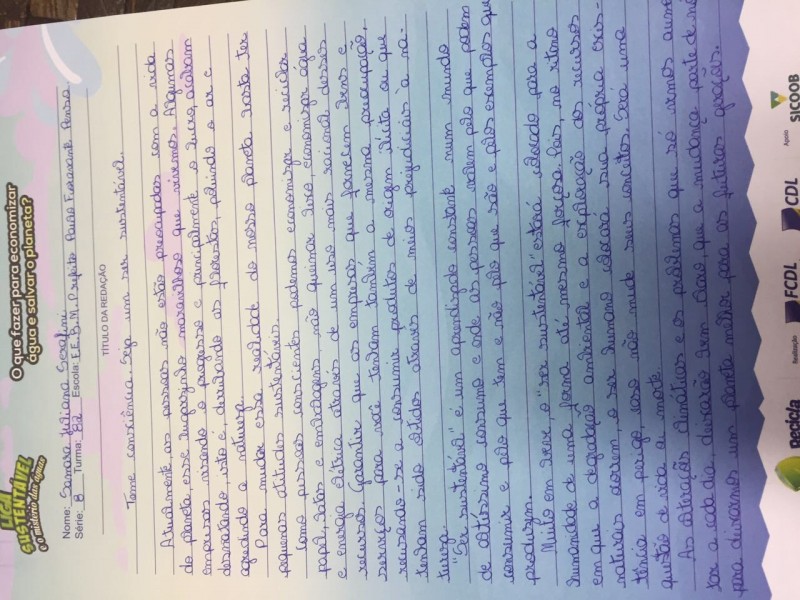 LIGA
SUSTENTÁVEL
e o mistério das águas
O que fazer para economizar
água e salvar o planeta?
Nome: Samara Juliana Serafini
Série: 8 Turma: 82 Escola: E.E.B.M. Prefeito Paulo
TÍTULO DA REDAÇÃO
Tome consciência. Seja um ser sustentável.
Atualmente, as pessoas não estão preocupadas com a vida
do planeta, esse lugarzinho maravilhoso que vivemos. Algumas
empresas visando o progresso e principalmente o lucro, acabam
desmatando, isto é, derrubando as florestas, poluindo o ar e
agredindo a natureza.
Para mudar essa realidade do nosso planeta basta ter
pequenas atitudes sustentáveis.
Como pessoas conscientes podemos economizar e reciclar
papel, latas e embalagens, não queimar lixo, economizar água
e energia elétrica através de um uso mais racional desses
recursos. Garantir que as empresas que fornecem bens e
serviços para você tenham também a mesma preocupação,
recusando-se a consumir produtos de origem ilícita ou que
tenham sido obtidos através de meios prejudiciais à na-
tureza.
"Ser sustentável" é um aprendizado constante num mundo
de altíssimo consumo e onde as pessoas valem pelo que podem
consumir e pelo que tem e não pelo que são e pelos exemplos que
produzem.
Muito em breve, o "ser sustentável" estará colocado para a
humanidade de uma forma até mesmo forçada. Pois, no ritmo
em que a degradação ambiental e a exploração dos recursos
naturais ocorrem, o ser humano colocará sua própria exis-
tência em perigo, caso não mude seus conceitos. Será uma
questão de vida ou morte.
As alterações climáticas e os problemas que só vemos aumen
tar a cada dia, deixarão bem claro, que a mudança parte de nós
para deixarmos um planeta melhor para as futuras gerações.
Recicla
Realização
FCDL
CDL
Apoio
SICOOB